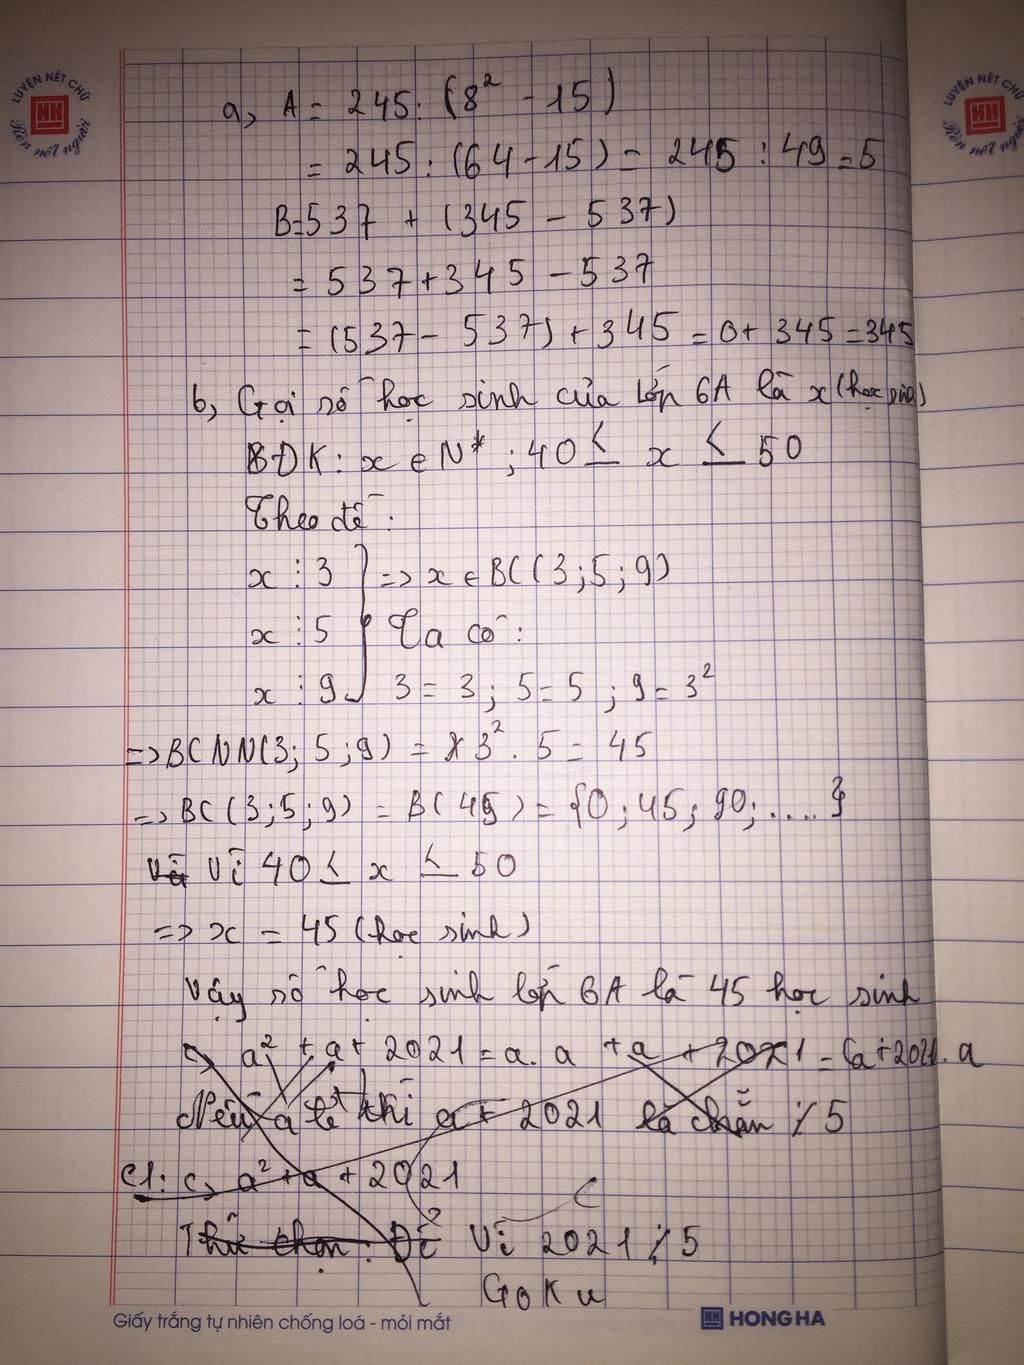 LUYỆN NÉT CHỮ
Rèn nết người
LUYỆN NÉT CHỮ
Rèn nết người
a, A = 245 : (8² - 15)
= 245 : (64 - 15) = 245 : 49 = 5
B = 537 + (345 - 537)
= 537 + 345 - 537
= (537 - 537) + 345 = 0 + 345 = 345
b, Gọi số học sinh của lớp 6A là x (học sinh)
ĐK: x ∈ N* ; 40 ≤ x ≤ 50
Theo đề:
x ⋮ 3 } => x ∈ BC(3; 5; 9)
x ⋮ 5 Ta có:
x ⋮ 9 3 = 3; 5 = 5; 9 = 3²
=> BCNN(3; 5; 9) = 3² . 5 = 45
=> BC(3; 5; 9) = B(45) = {0; 45; 90; ....}
Vì 40 ≤ x ≤ 50
=> x = 45 (học sinh)
Vậy số học sinh lớp 6A là 45 học sinh
c, a² + a + 2021 = a. a + a + 2021 = (a + 2021. a
Nếu a lẻ thì a + 2021 là chẵn ⋮̸ 5
C1: c, a² + a + 2021
Vì 2021 ⋮̸ 5
GoKu
Giấy trắng tự nhiên chống loá - mỏi mắt
HH HONG HA